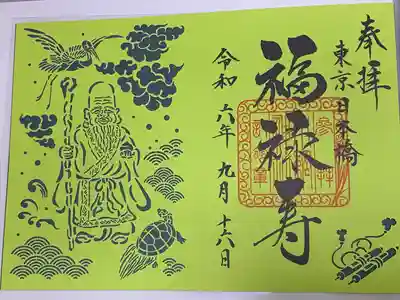 奉拝
東京日本橋
福禄寿
令和六年九月十六日